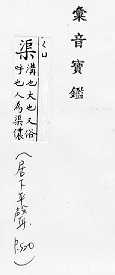 彙音寶鑑
ㄑㄩ
渠 溝也大也又俗
呼他人為渠儂
(居下平聲
P.520)